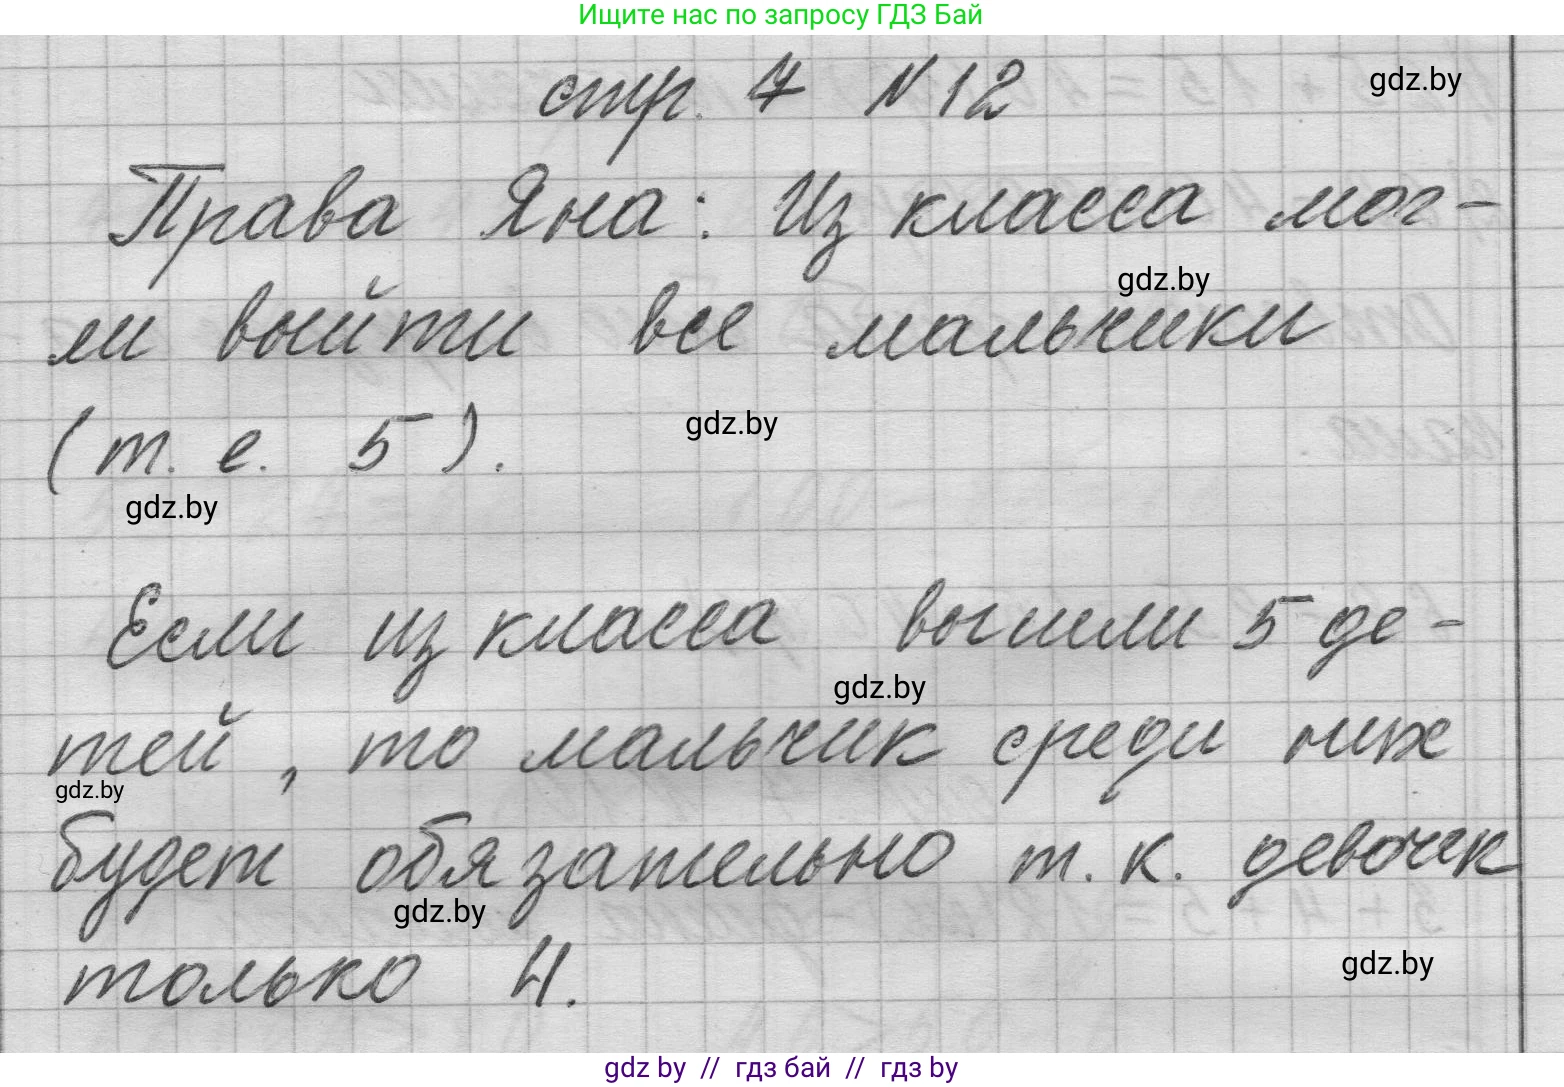 Ищите нас по запросу ГДЗ Бай
стр. 7 N 12
gdz.by
Права Яна: Из класса мог-
gdz.by
ли выйти все мальчики
(т. е. 5).
gdz.by
gdz.by
Если из класса вышли 5 де-
gdz.by
тей, то мальчик среди них
gdz.by
будет обязательно т. к. девочек
gdz.by
только 4.
gdz.by
gdz by // гдз бай // гдз by